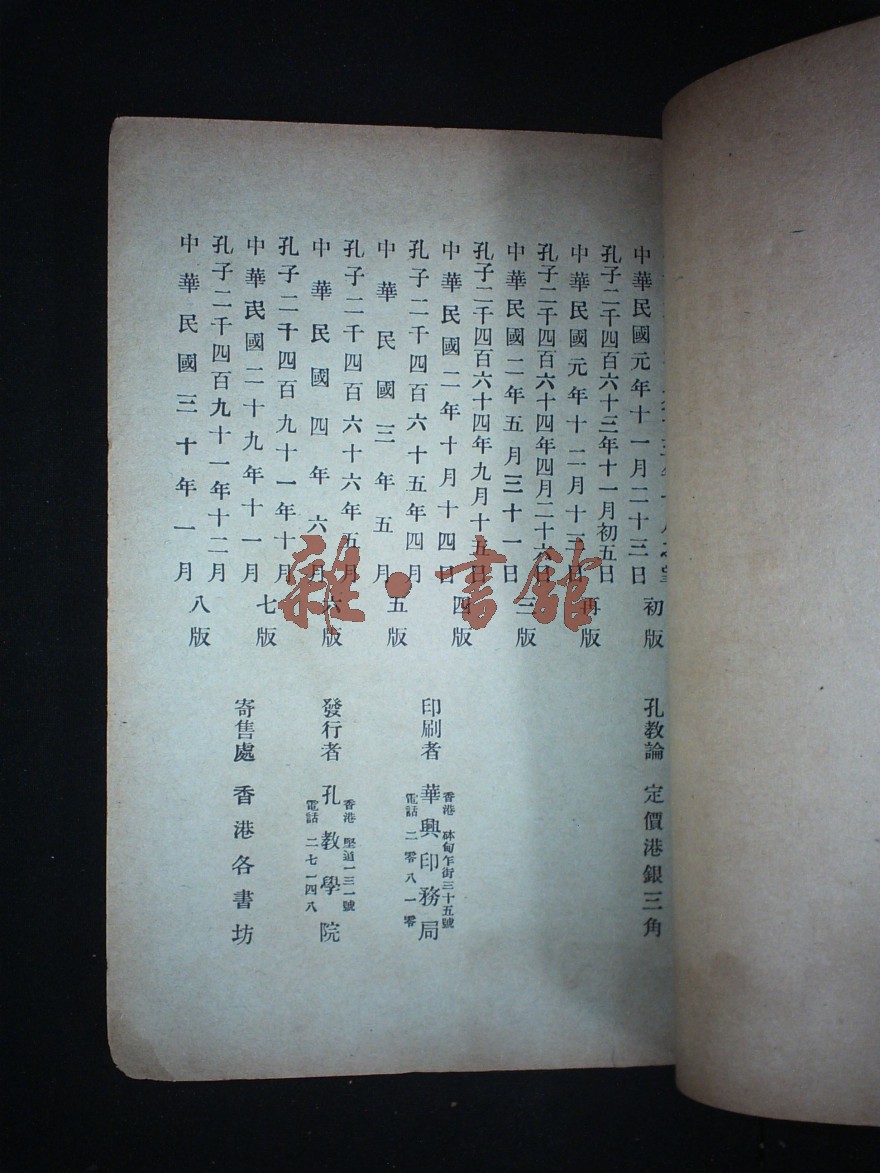 中華民國元年十一月二十三日
初版
孔子二千四百六十三年十一月初五日
中華民國元年十二月十三日
再版
孔子二千四百六十四年四月二十六日
中華民國二年五月三十一日
三版
孔子二千四百六十四年九月十五日
中華民國二年十月十四日
四版
孔子二千四百六十五年四月
中華民國三年五月
五版
孔子二千四百六十六年五月
中華民國四年六月
六版
孔子二千四百九十一年十月
中華民國二十九年十一月
七版
孔子二千四百九十一年十二月
中華民國三十年一月
八版
孔教論 定價港銀三角
印刷者 華興印務局
香港 砵甸乍街三十五號
電話 二零八一零
發行者 孔教學院
香港 堅道一三一號
電話 二七一四八
寄售處 香港各書坊
雜·書館